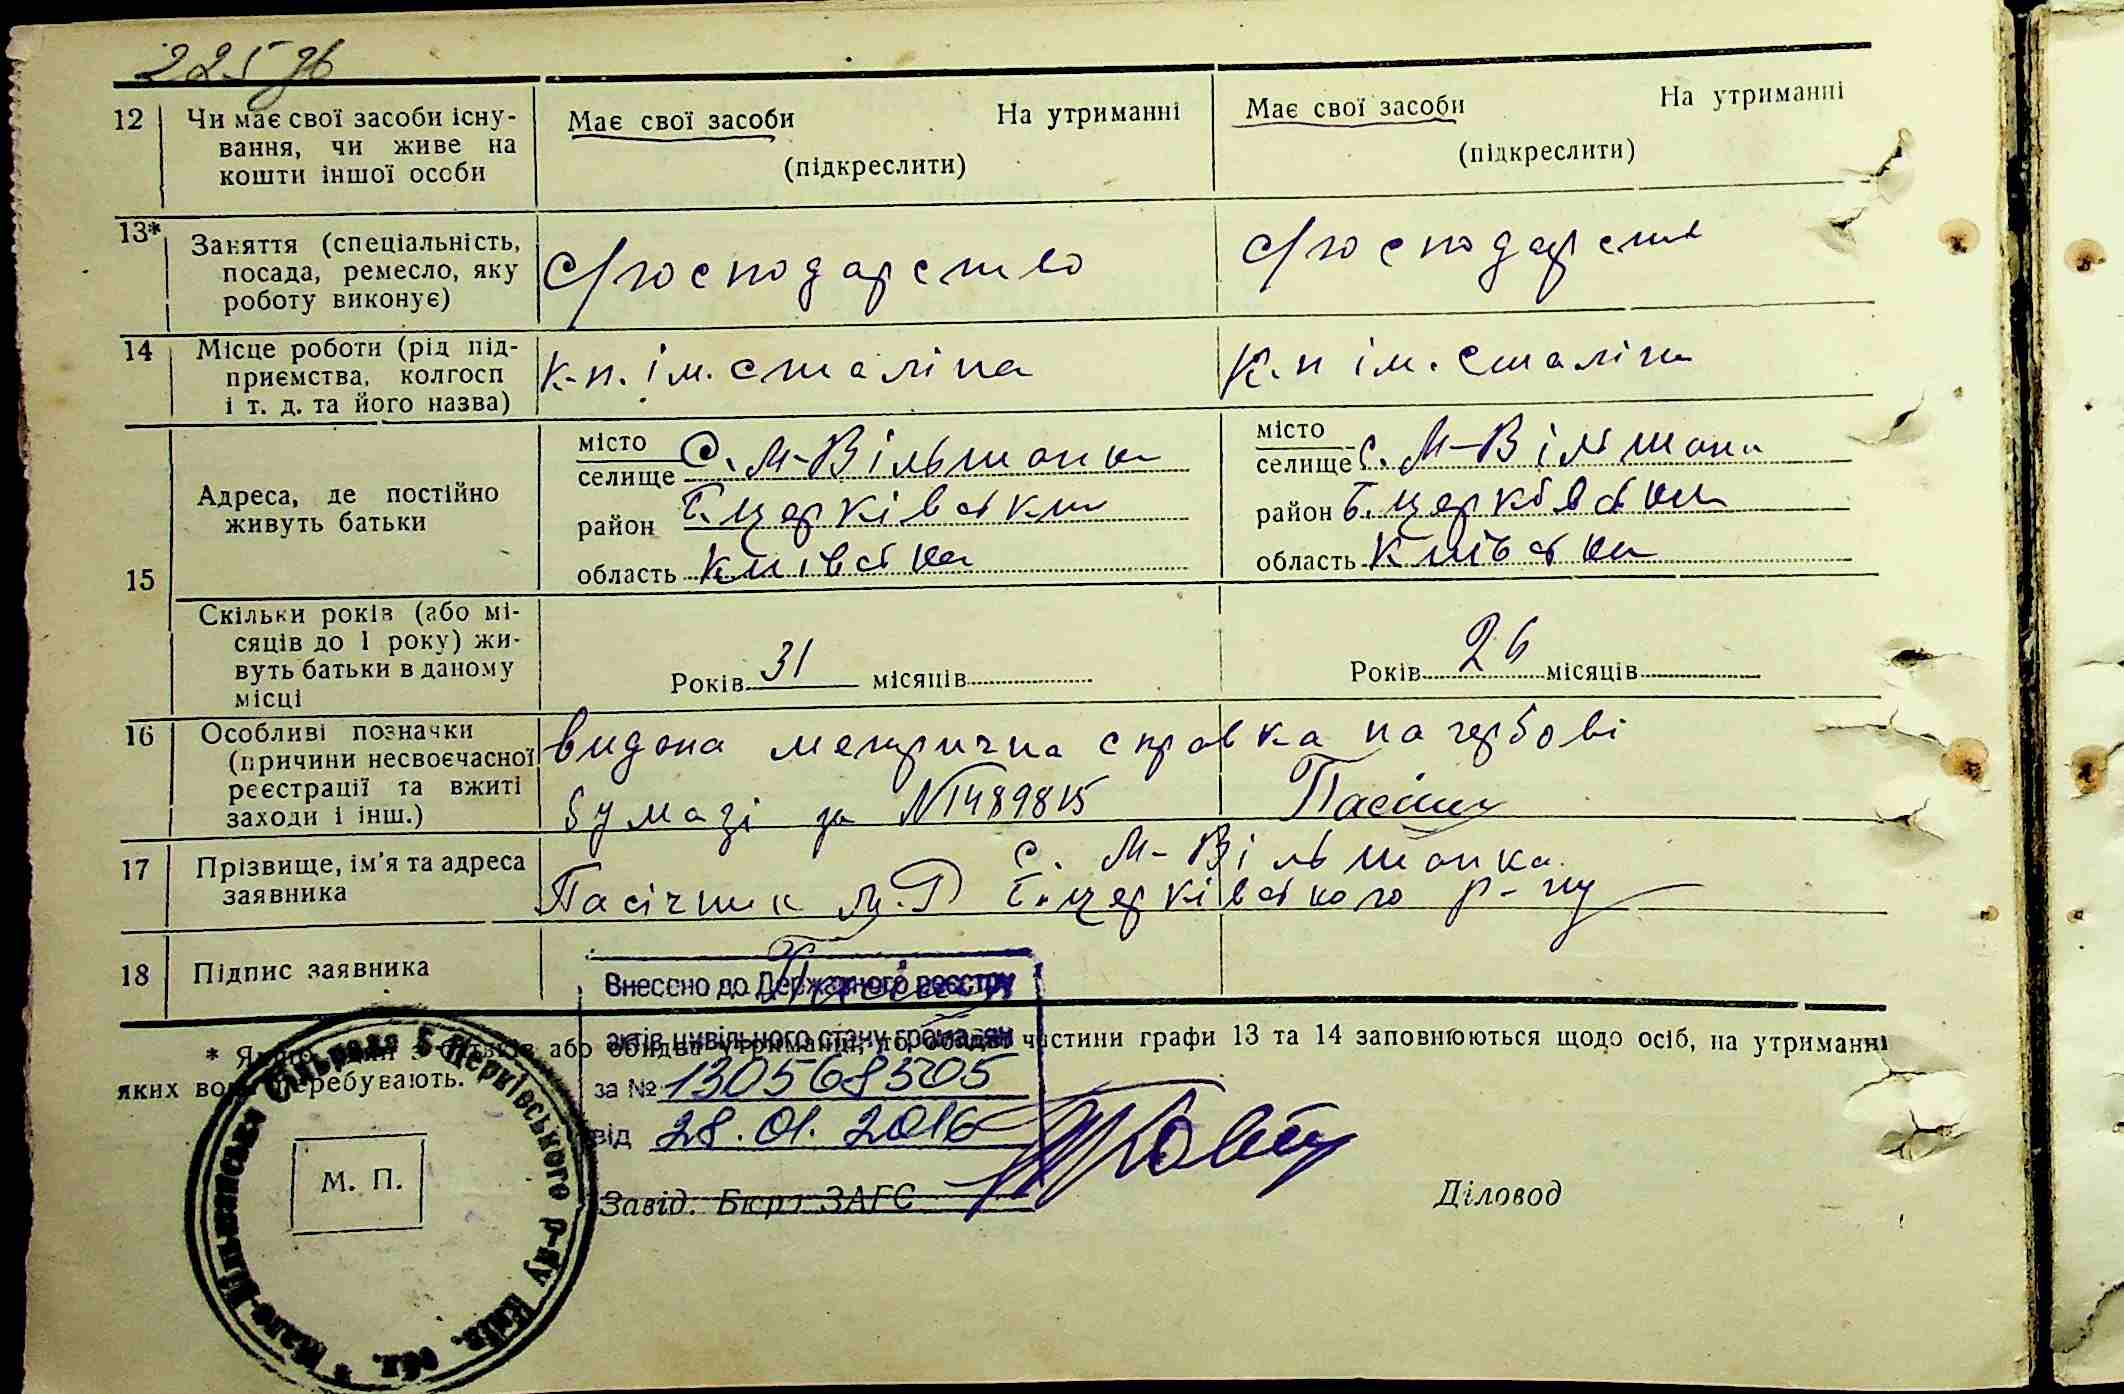 225 зв
12 Чи має свої засоби існу- Має свої засоби На утриманні Має свої засоби На утриманні
вання, чи живе на (підкреслити) (підкреслити)
кошти іншої особи
13* Заняття (спеціальність, с/господарство с/господарств
посада, ремесло, яку
роботу виконує)
14 Місце роботи (рід під- к-п. ім. сталіна к-п ім. сталін
приємства, колгосп
і т. д. та його назва)
15 Адреса, де постійно живуть батьки
місто селище с. М-Вільшанка місто селище с. М-Вільшанка
район Б.церківськи район Б.церківськи
область Київська область Київська
Скільки років (або мі-
сяців до 1 року) жи-
вуть батьки в даному
місці
Років 31 місяців Років 26 місяців
16 Особливі позначки видана метрична справка на гербові
(причини несвоєчасної
реєстрації та вжиті бумазі за №1489815
заходи і інш.)
17 Прізвище, ім'я та адреса с. М-Вільшанка
заявника Пасічник Б.церківського р-ну
18 Підпис заявника
Внесено до Державного реєстру
актів цивільного стану громадян
за № 1305685705
від 28.01.2016
* Якщо один з батьків або обидва утриманці, то обидві частини графи 13 та 14 заповнюються щодо осіб, на утриманні
яких вони перебувають.
М. П.
Завід. Бюро ЗАГС Діловод
Мало-Вільшанська сільрада Б-Церківського р-ну Київ. обл. *